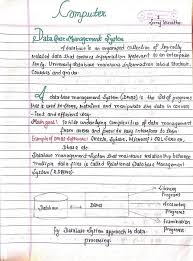 Computer
Data Base Management System
A database is an organized collection of logically
related data that contains information relevant to an enterprise
University database maintains information about student,
courses and grades
A database management system (DBMS) is the set of programs
that is used to store, retrieve and manipulate the data in convenient
and efficient way.
Main goal: to hide underlying complexities of data management
from users and provide easy interface to them
Example of DBMS software: Oracle, Sybase, Microsoft SQL Server,
etc
Database management system that maintains relationship between
multiple data files is called Relational Database Management
System (RDBMS)
Library
Program
Database
DBMS
Accounting
Programs
Examination
Programs
Fig. Database System approach to data
processing.